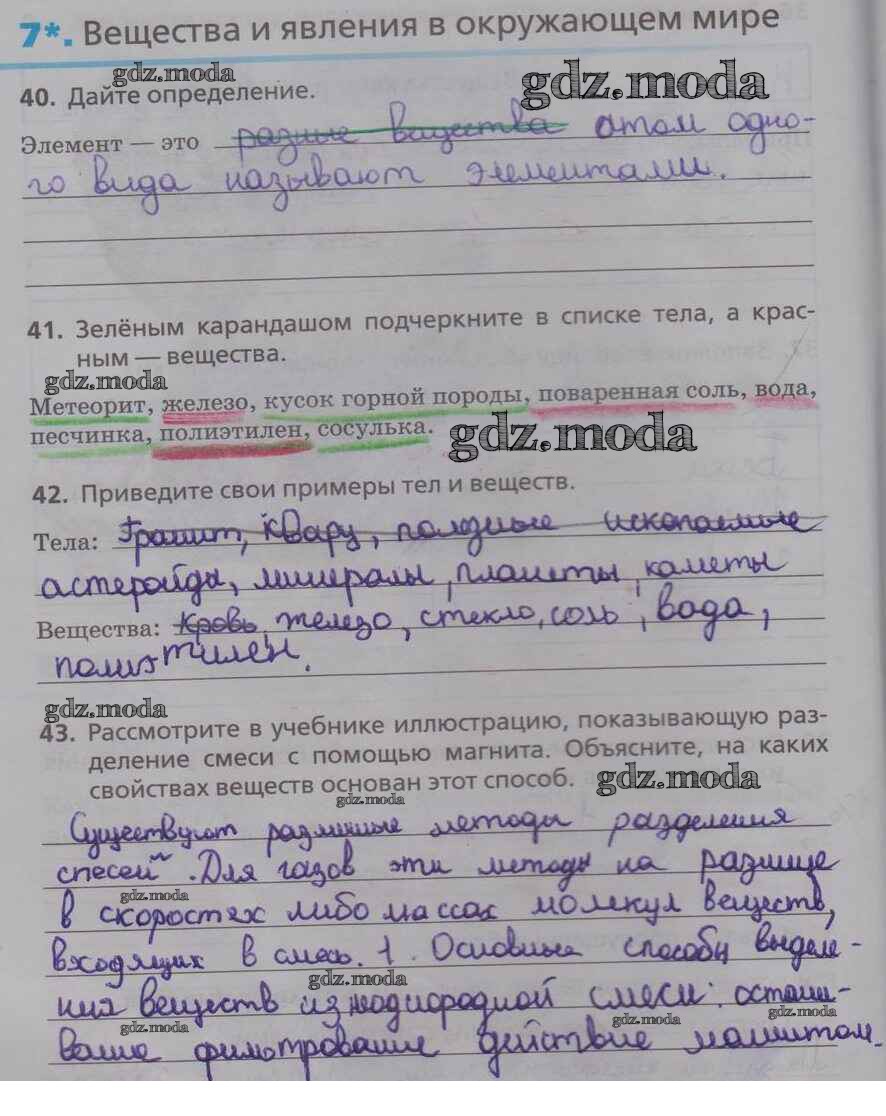 7*. Вещества и явления в окружающем мире
gdz.moda
gdz.moda
40. Дайте определение.
Элемент — это разные вещества атом одно-
го вида называют элементами.
41. Зелёным карандашом подчеркните в списке тела, а крас-
ным — вещества.
gdz.moda
Метеорит, железо, кусок горной породы, поваренная соль, вода,
песчинка, полиэтилен, сосулька.
gdz.moda
42. Приведите свои примеры тел и веществ.
Тела: Гранит, кварц, полезные ископаемые
астеройды, минералы, планеты, каметы
Вещества: кровь, железо, стекло, соль, вода,
полиэтилен.
gdz.moda
43. Рассмотрите в учебнике иллюстрацию, показывающую раз-
деление смеси с помощью магнита. Объясните, на каких
свойствах веществ основан этот способ.
gdz.moda
gdz.moda
Существуют различные методы разделения
спесей. Для газов эти методы на разнице
gdz.moda
в скоростях либо массах молекул веществ,
входящих в смесь. 1. Основные способы выделе-
gdz.moda
ния веществ из неоднородной смеси: отстаи-
gdz.moda
gdz.moda
gdz.moda
вание фильтрование действие магнитом.